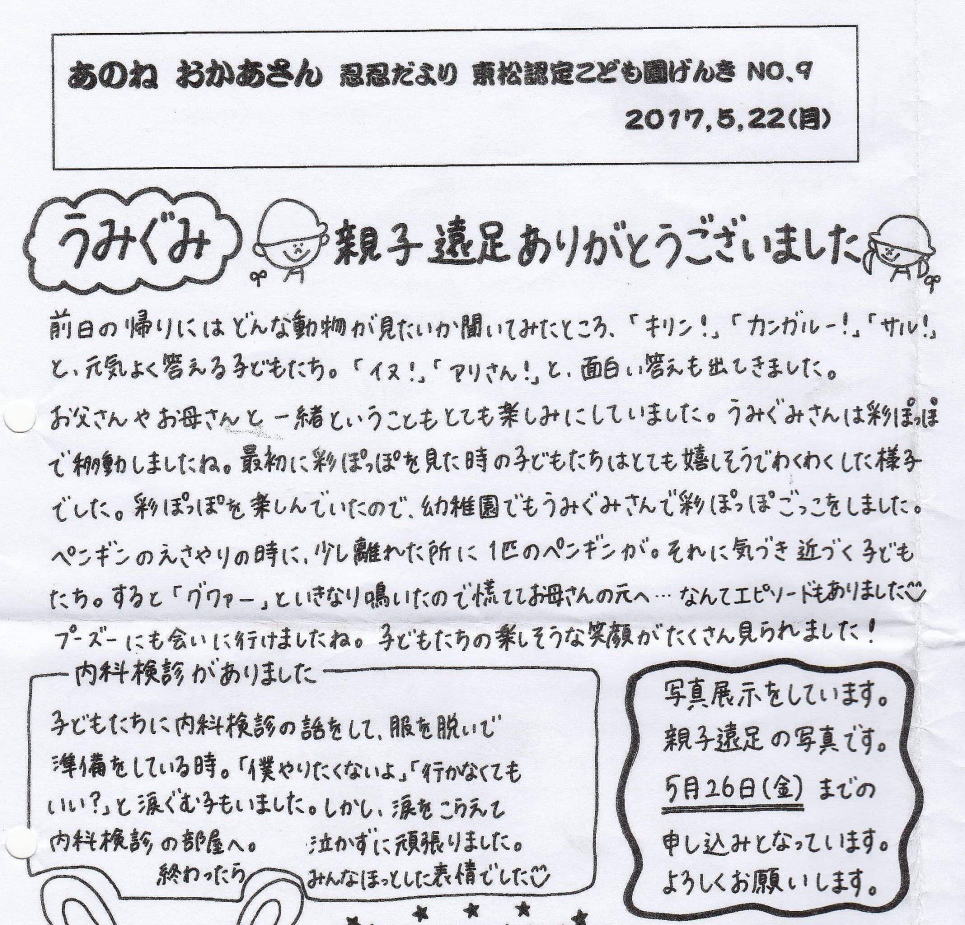 あのね おかあさん 忍忍だより 東松認定こども園げんき NO、9
2017,5,22(月)
うみぐみ 親子遠足ありがとうございました
前日の帰りにはどんな動物が見たいか聞いてみたところ、「キリン!」「カンガルー!」「サル!」
と、元気よく答える子どもたち。「イヌ!」「アリさん!」と、面白い答えも出てきました。
お父さんやお母さんと一緒ということもとても楽しみにしていました。うみぐみさんは彩ぽっぽ
で移動しましたね。最初に彩ぽっぽを見た時の子どもたちはとても嬉しそうでわくわくした様子
でした。彩ぽっぽを楽しんでいたので、幼稚園でもうみぐみさんで彩ぽっぽごっこをしました。
ペンギンのえさやりの時に、少し離れた所に1匹のペンギンが。それに気づき近づく子ども
たち。すると「グワァー」といきなり鳴いたので慌ててお母さんの元へ…なんてエピソードもありました
プーズーにも会いに行けましたね。子どもたちの楽しそうな笑顔がたくさん見られました!
内科検診がありました
子どもたちに内科検診の話をして、服を脱いで
準備をしている時。「僕やりたくないよ」「行かなくても
いい?」と涙ぐむ子もいました。しかし、涙をこらえて
内科検診の部屋へ。 泣かずに頑張りました。
終わったら みんなほっとした表情でした♡
写真展示をしています。
親子遠足の写真です。
5月26日(金)までの
申し込みとなっています。
よろしくお願いします。